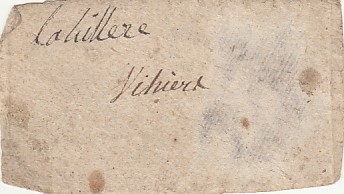 Cahillere
Vihiers